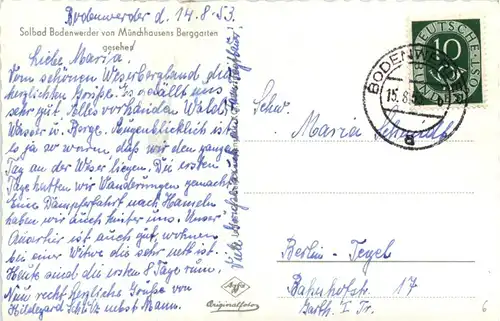 Bodenwerder d. 14.8.53.
Solbad Bodenwerder von Münchhausens Berggarten
gesehen
Liebe Maria.
Vom schönen Weserbergland die
herzlichsten Grüße. Es gefällt uns
sehr gut. Alles vorhanden Wald
Wasser u. Berge. Augenblicklich ist
es ja so warm daß wir den ganzen
Tag an der Weser liegen. Die ersten
Tage hatten wir Wanderungen gemacht.
Eine Dampferfahrt nach Hameln
haben wir auch hinter uns. Unser
Quartier ist auch gut, wohnen
bei einer Witwe die sehr nett ist.
Heute sind die ersten 8 Tage rum.
Nun recht herzliche Grüße von
Hildegard Schütz nebst Mann.
Viele Grüße auch an
Agfa
Originalfoto
DEUTSCHE BUNDESPOST
10
BODENWERDER
15.8.
Schw.
Maria Schmidt
Berlin-Tegel
Bahnhofstr. 17
Garth. I Tr.
6